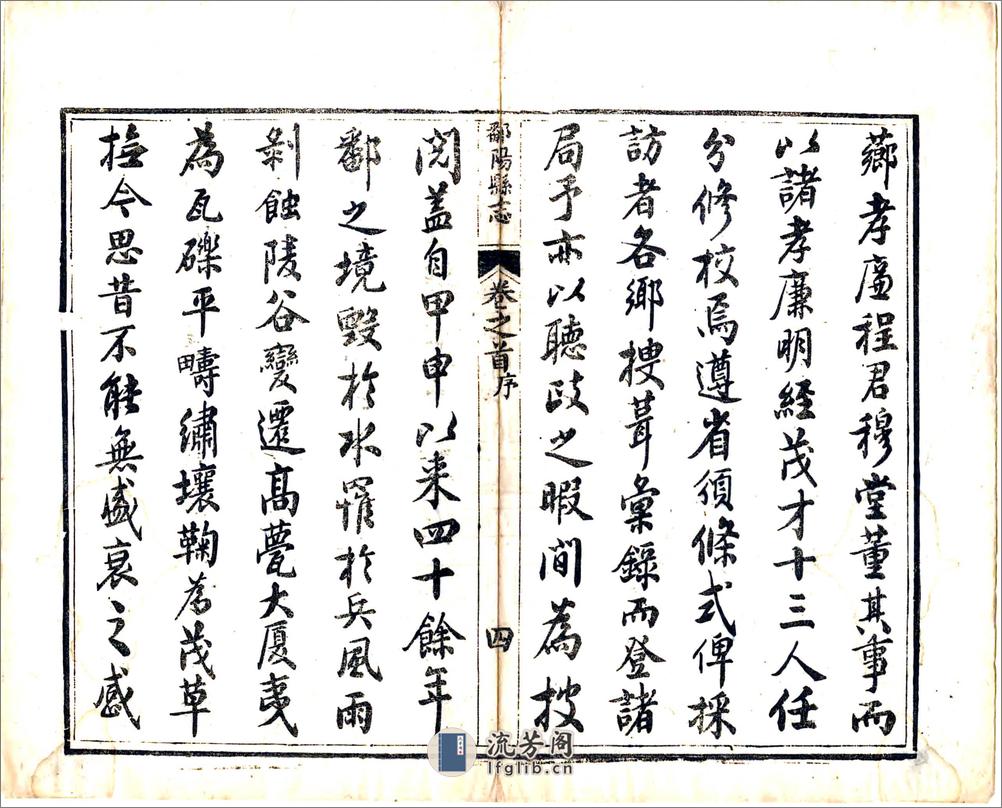 薌孝廉程君穆堂董其事而
以諸孝廉明經茂才十三人任
分修校焉遵省頒條式俾採
訪者各鄉搜葺彙錄而登諸
局予亦以聽政之暇間為披
鄱陽縣志
卷之首序
四
閱蓋自甲申以来四十餘年
鄱之境毀於水罹於兵風雨
剝蝕陵谷變遷高甍大厦夷
為瓦礫平疇繡壤鞠為茂草
撫今思昔不能無盛衰之感
流芳阁
lfglib.cn